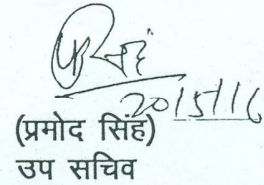 20/5/16
(प्रमोद सिंह)
उप सचिव